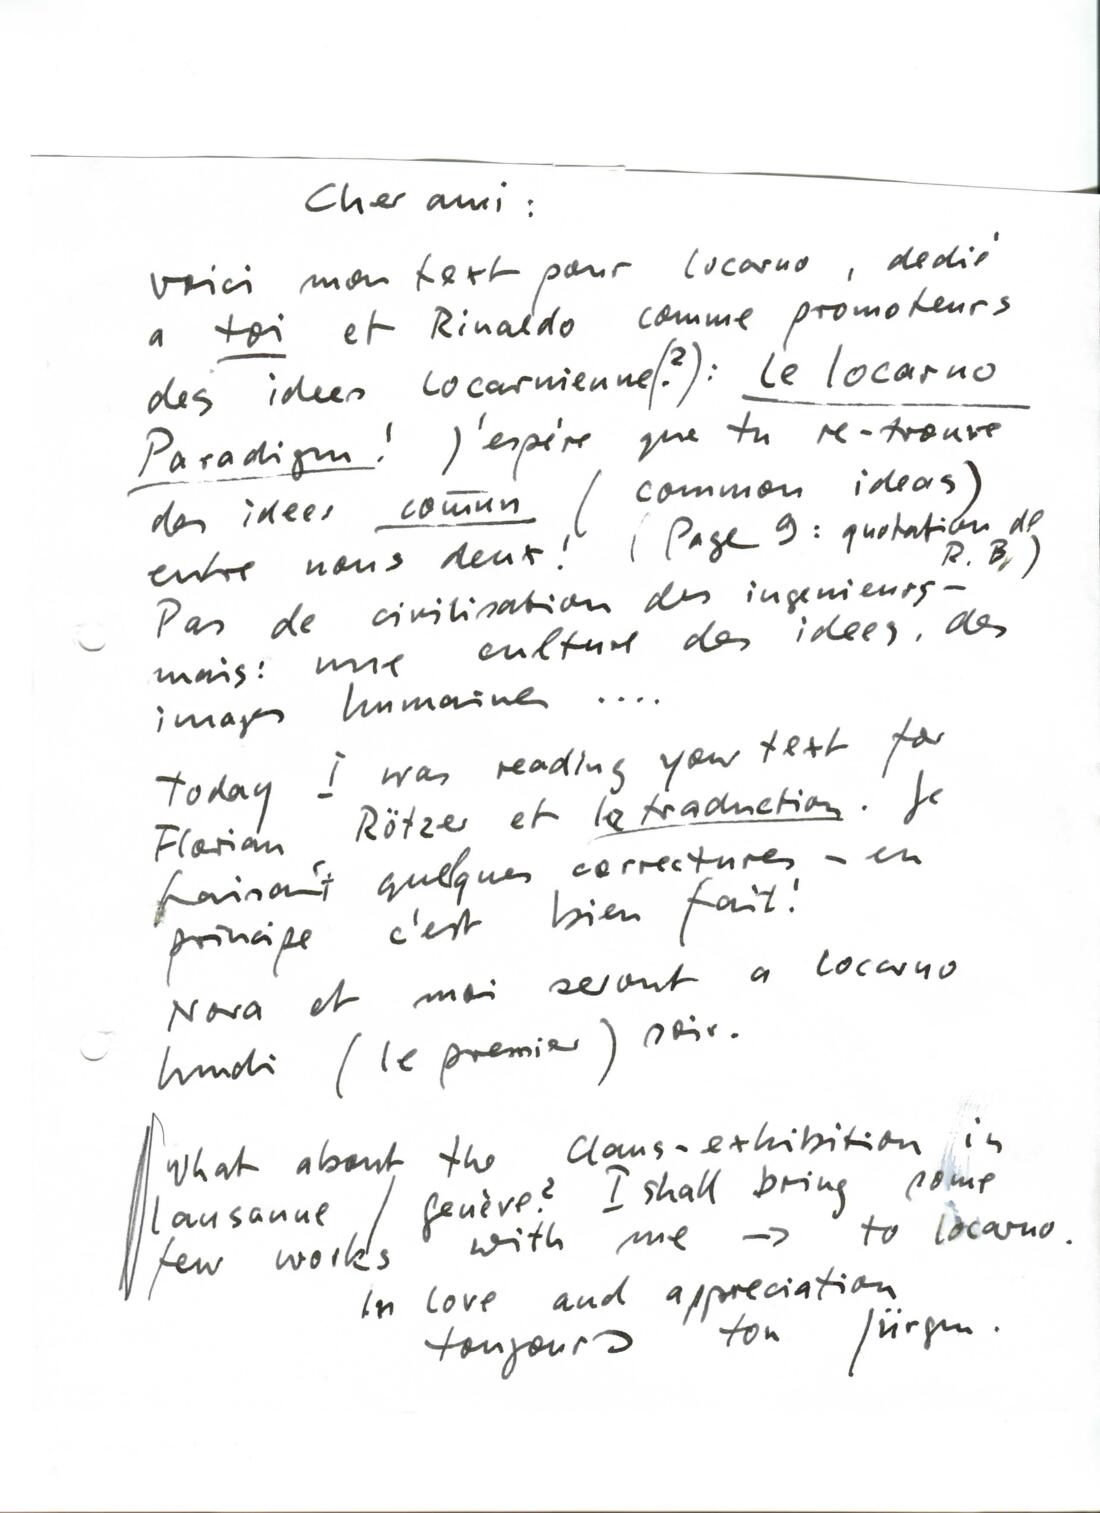 Cher ami :
voici mon text pour locarno, dedié
a toi et Rinaldo comme promoteurs
des idees Locarnienne(?): Le locarno
Paradigm! J'espére que tu re-trouve
des idees comun (common ideas)
entre nous deux! (Page 9: quotation de
R. B.)
Pas de civilisation des ingenieurs-
mais: une culture des idees, des
images humaines ....
Today I was reading your text for
Florian Rötzer et la traduction. Je
faisait quelques correctures - en
principe c'est bien fait!
Nora et moi seront a Locarno
lundi (le premier) soir.
What about the Claus-exhibition in
lausanne / genève? I shall bring some
few works with me → to locarno.
In love and appreciation
toujours ton Jürgen.